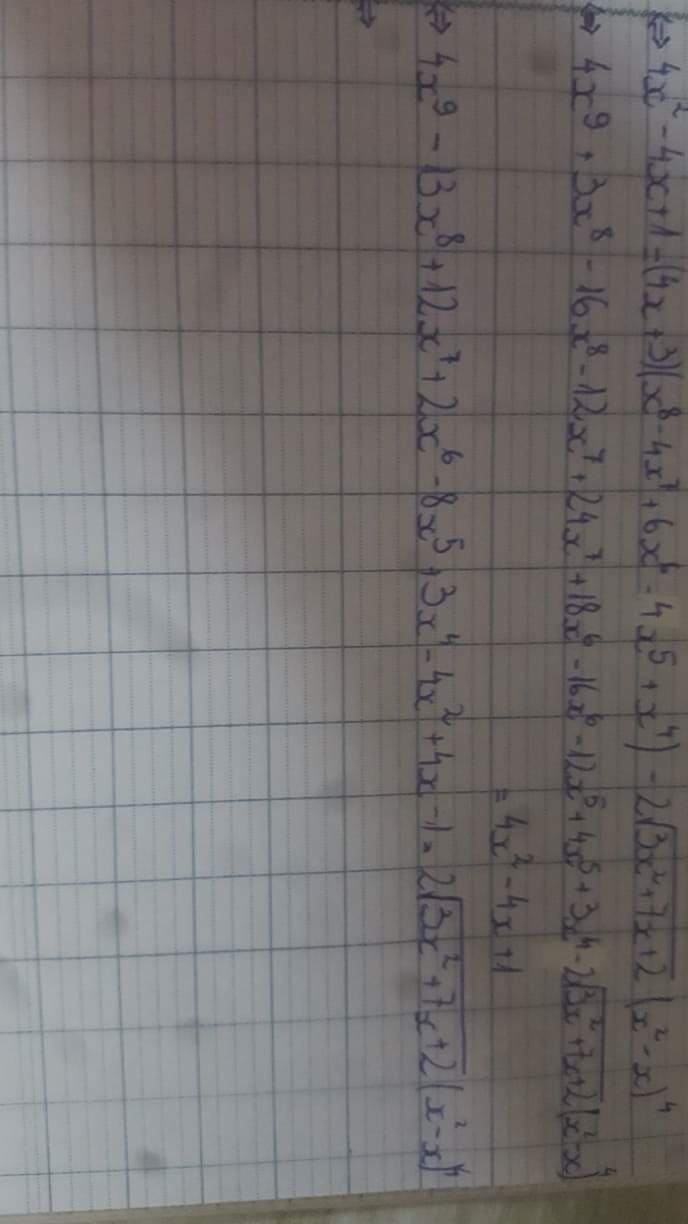 ⇔ 4x² - 4x + 1 = (4x + 3)(x⁸ - 4x⁷ + 6x⁶ - 4x⁵ + x⁴) - 2√(3x² + 7x + 2) (x² - x)⁴
⇔ 4x⁹ + 3x⁸ - 16x⁸ - 12x⁷ + 24x⁷ + 18x⁶ - 16x⁶ - 12x⁵ + 4x⁵ + 3x⁴ - 2√(3x² + 7x + 2) (x² - x)⁴
= 4x² - 4x + 1
⇔ 4x⁹ - 13x⁸ + 12x⁷ + 2x⁶ - 8x⁵ + 3x⁴ - 4x² + 4x - 1 = 2√(3x² + 7x + 2) (x² - x)⁴
⇔